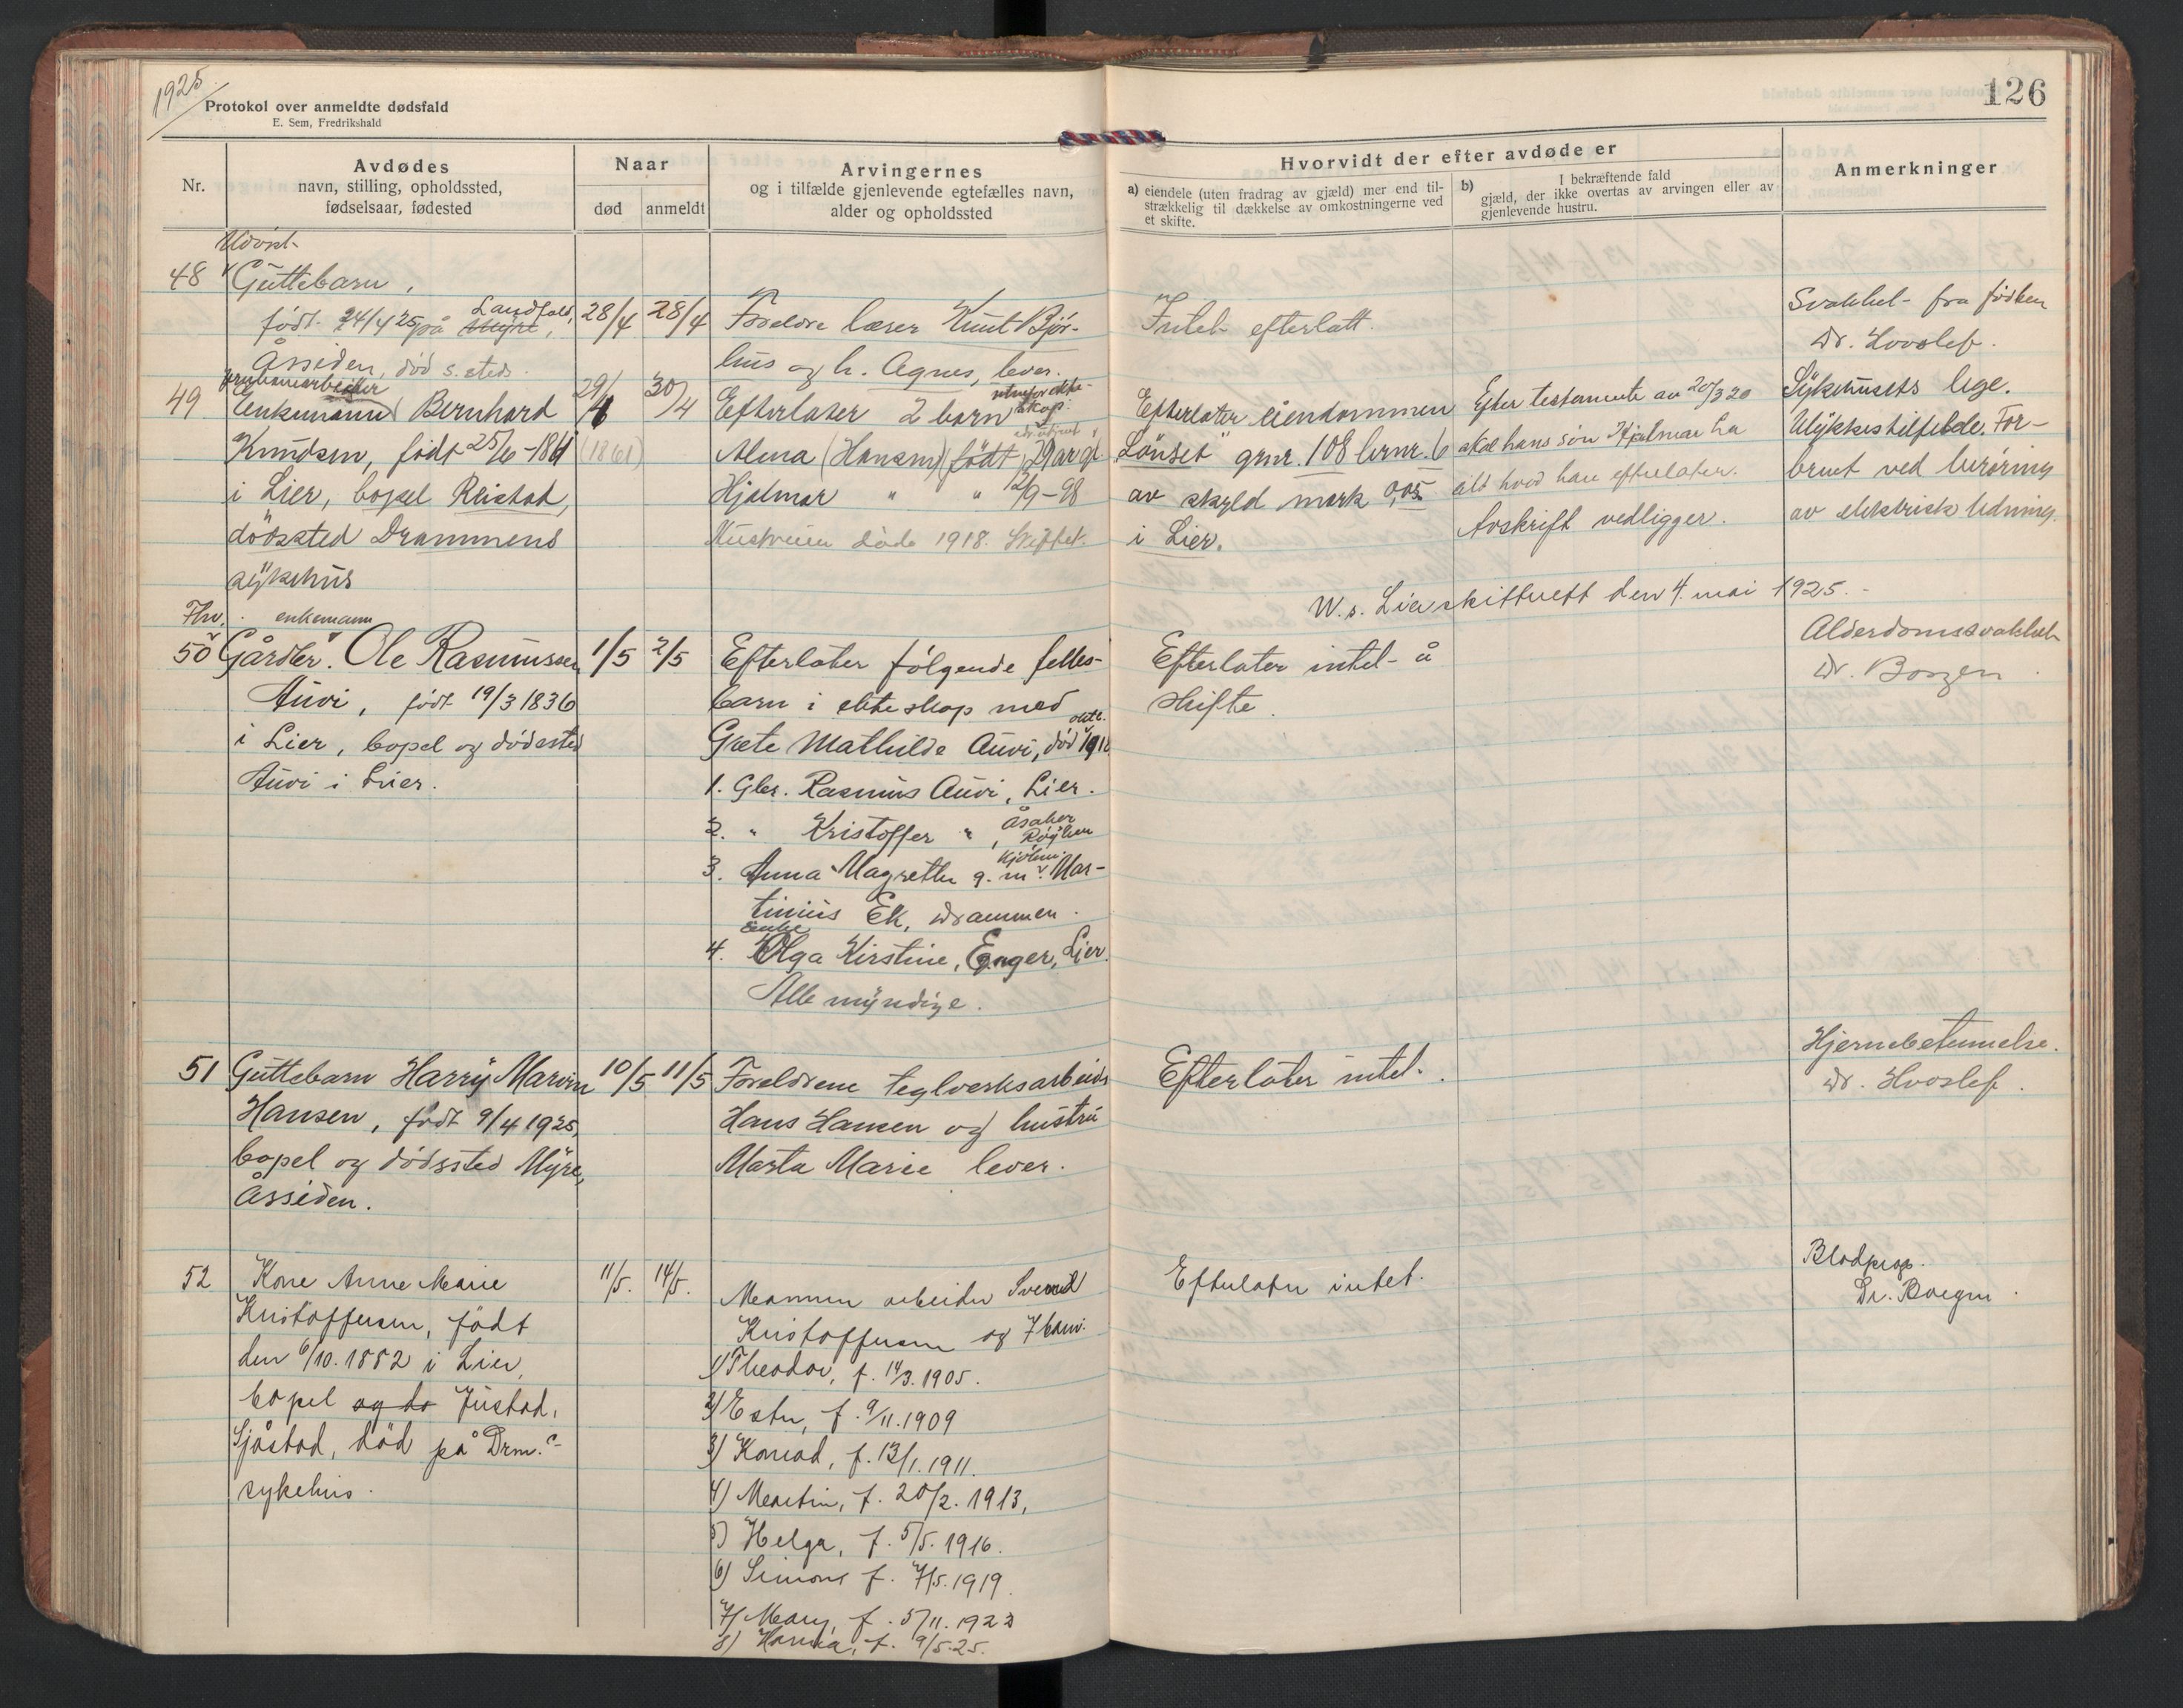 1925
Protokol over anmeldte dødsfald
E. Sem, Fredrikshald
126
Nr.
Avdødes
navn, stilling, opholdssted,
fødselsaar, fødested
Naar
død
anmeldt
Arvingernes
og i tilfælde gjenlevende egtefælles navn,
alder og opholdssted
Hvorvidt der efter avdøde er
a) eiendele (uten fradrag av gjæld) mer end til-
strækkelig til dækkelse av omkostningerne ved
et skifte.
b) I bekræftende fald
gjæld, der ikke overtas av arvingen eller av
gjenlevende hustru.
Anmerkninger
Udøpt
48 Guttebarn,
født 24/4 25 på Myre, Landfald,
Åssiden, død s. steds.
28/4
28/4
Foreldre læser Knut Bjør-
hus og h. Agnes, lever.
Intet efterlatt.
Svakhet fra fødsen
Dr. Hovslef.
49 Enkemann jernbanearbeider Bernhard
Knudsen, født 25/6 - 1861 (1861)
i Lier, bopel Reistad,
dödssted Drammens
sykehus
29/4
30/4
Efterlater 2 barn utenfor ekte-
skap:
Alma (Hansen) født 29 år gl
Hjalmar " " 2/9 - 98
Hustruen døde 1918. Skiftet.
Efterlater eiendommen
"Lönset" grnr. 108 brnr. 6
av skyld mark 0,05
i Lier.
Efter testamente av 20/3 20
skal hans sön Hjalmar ha
alt hvad han efterlater.
Avskrift vedligger.
Sykehusets lege.
Ulykkestilfelde. For-
brent ved beröring
av elektrisk ledning.
W. s. Lier skifterett den 4. mai 1925.
50 Gårdbr. enkemann Ole Rasmussen
Auvi, født 19/3 1836
i Lier, bopel og dödssted
Auvi i Lier.
1/5
2/5
Efterlater følgende felles-
barn i ekteskap med
Grete Mathilde Auvi, død 1918
1. Gbr. Rasmus Auvi, Lier.
2. " Kristoffer ", Åsaker
Røyken
3. Anna Magrethe g. m. Kjøbm. Mar-
tinius Ek, Drammen.
4. Enke Olga Kirstine, Enger, Lier.
Alle myndige.
Efterlater intet å
skifte.
Alderdomssvakhet
Dr. Borgen
51 Guttebarn Harry Marvin
Hansen, født 9/4 1925,
bopel og dødssted Myre,
Åssiden.
10/5
11/5
Foreldrene teglverksarbeider
Hans Hansen og hustru
Marta Marie lever.
Efterlater intet.
Hjernebetennelse.
Dr. Hovslef.
52 Kone Anne Marie
Kristoffersen, født
den 6/10. 1882 i Lier,
bopel og do Justad,
Sjåstad, død på Drm.s
sykehus.
11/5.
14/5.
Mannen arbeider Svend
Kristoffersen og 7 barn.
1) Theodor, f. 14/3. 1905.
2) Ester, f. 9/11. 1909
3) Konrad, f. 13/1. 1911.
4) Martin, f. 20/2. 1913,
5) Helga, f. 5/5. 1916.
6) Simone f. 7/5. 1919.
7) Mary, f. 5/11. 1923
8) Hanna, f. 9/5-25.
Efterlater intet.
Blodprop.
Dr. Borgen.